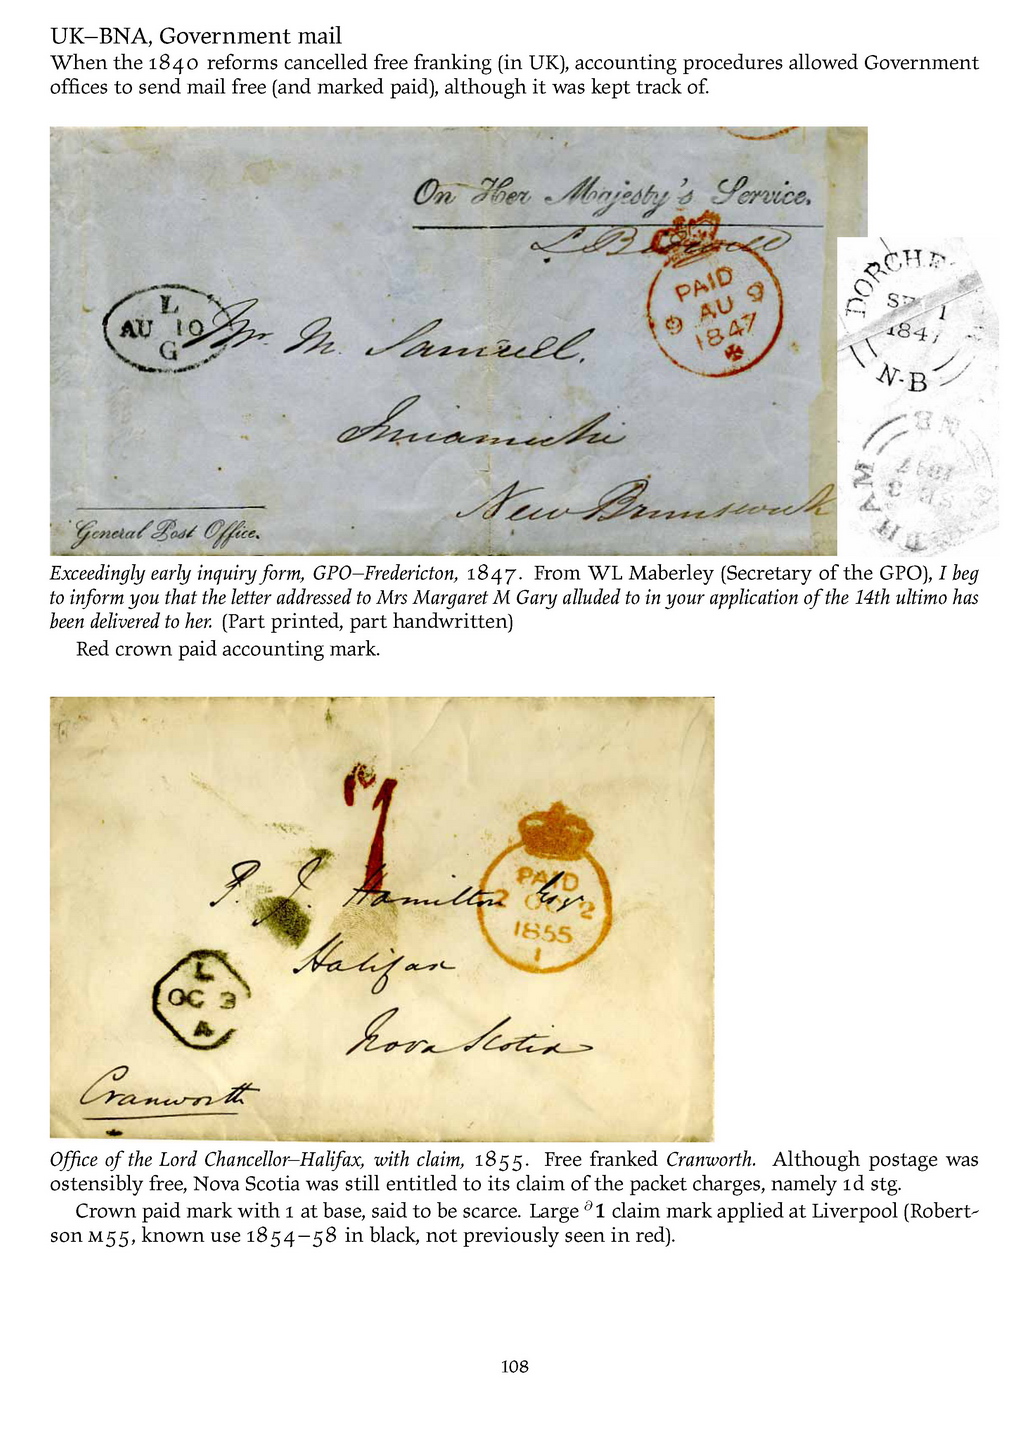 UK–BNA, Government mail
When the 1840 reforms cancelled free franking (in UK), accounting procedures allowed Government
offices to send mail free (and marked paid), although it was kept track of.
On Her Majesty's Service.
PAID
9 AU 9
1847
L
AU 10
G
Mr. M. Samuell,
New Brunswick
General Post Office.
DORCHE
1
184
N-B
HAM
Exceedingly early inquiry form, GPO–Fredericton, 1847. From WL Maberley (Secretary of the GPO), I beg
to inform you that the letter addressed to Mrs Margaret M Gary alluded to in your application of the 14th ultimo has
been delivered to her. (Part printed, part handwritten)
Red crown paid accounting mark.
1
PAID
2 OC 2
1855
1
P. J. Hamilton Esqr
Halifax
Nova Scotia
L
OC 3
A
Cranworth
Office of the Lord Chancellor–Halifax, with claim, 1855. Free franked Cranworth. Although postage was
ostensibly free, Nova Scotia was still entitled to its claim of the packet charges, namely 1d stg.
Crown paid mark with 1 at base, said to be scarce. Large ∂1 claim mark applied at Liverpool (Robert-
son M55, known use 1854–58 in black, not previously seen in red).
108